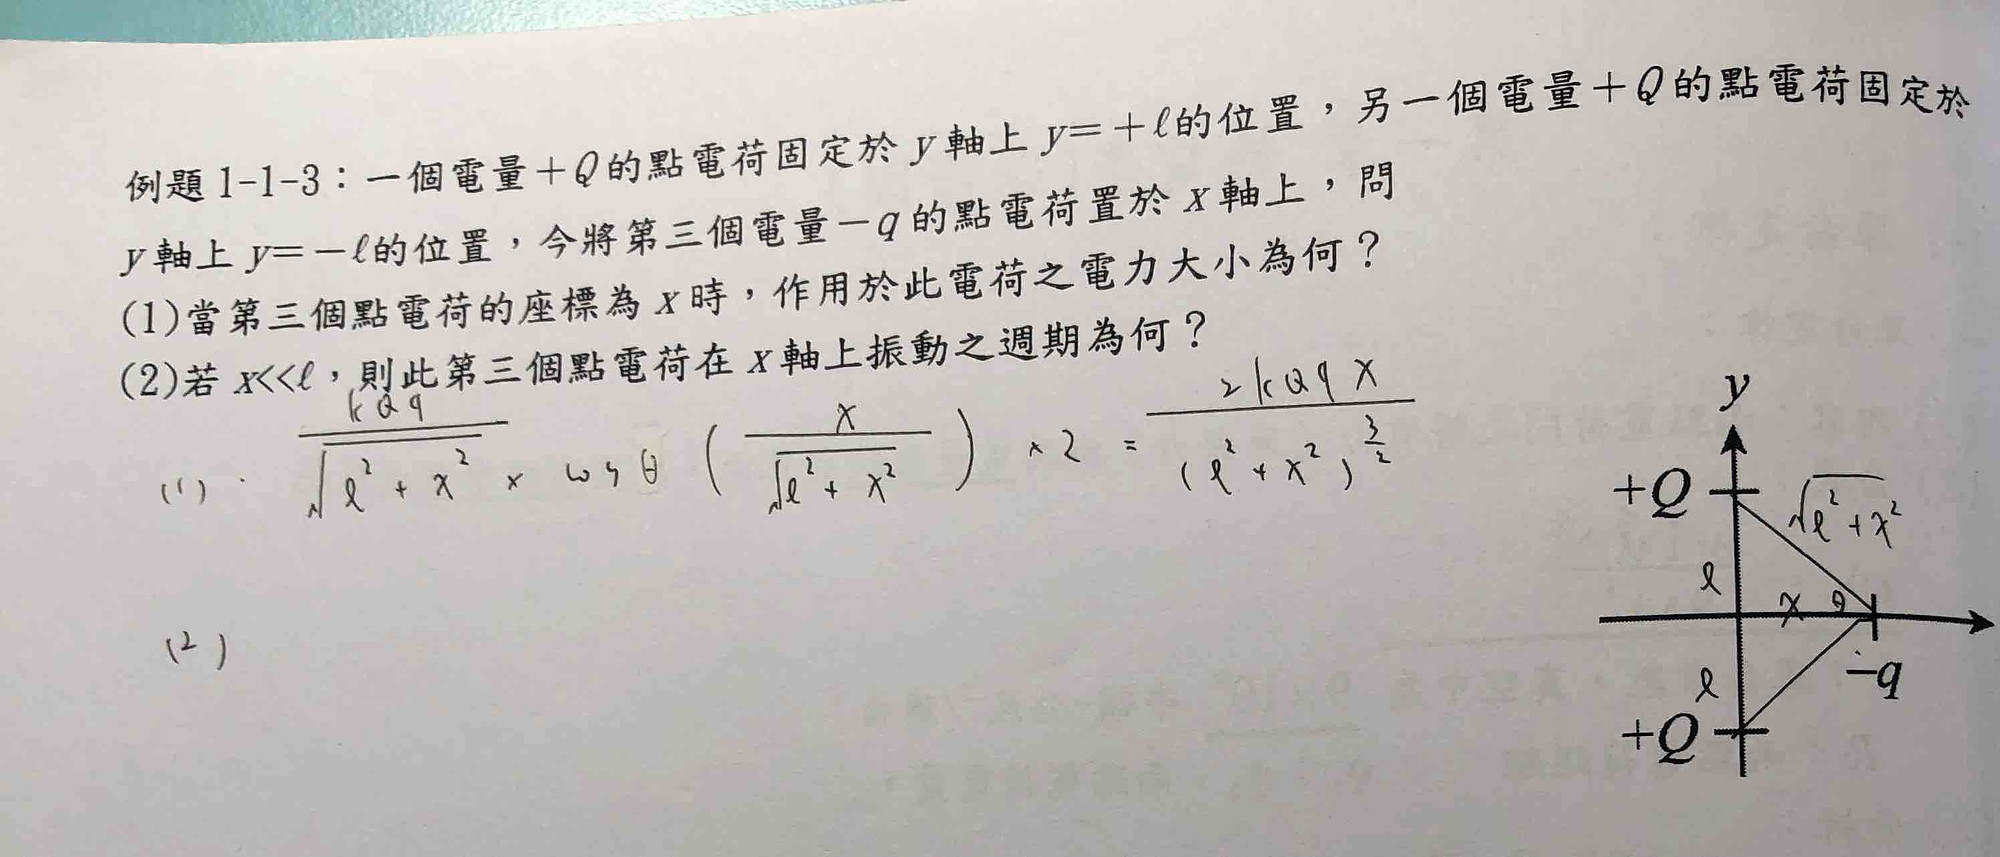 例題 1-1-3：一個電量＋Q的點電荷固定於 y 軸上 y=＋ℓ的位置，另一個電量＋Q的點電荷固定於
y 軸上 y=－ℓ的位置，今將第三個電量－q 的點電荷置於 x 軸上，問
(1)當第三個點電荷的座標為 x 時，作用於此電荷之電力大小為何？
(2)若 x<<ℓ，則此第三個點電荷在 x 軸上振動之週期為何？
(1). kQq/√(ℓ²+x²) × cosθ (x/√(ℓ²+x²)) ×2 = 2kQqx/(ℓ²+x²)^(3/2)
(2)
y
+Q
√(ℓ²+x²)
ℓ
x θ
-q
ℓ
+Q